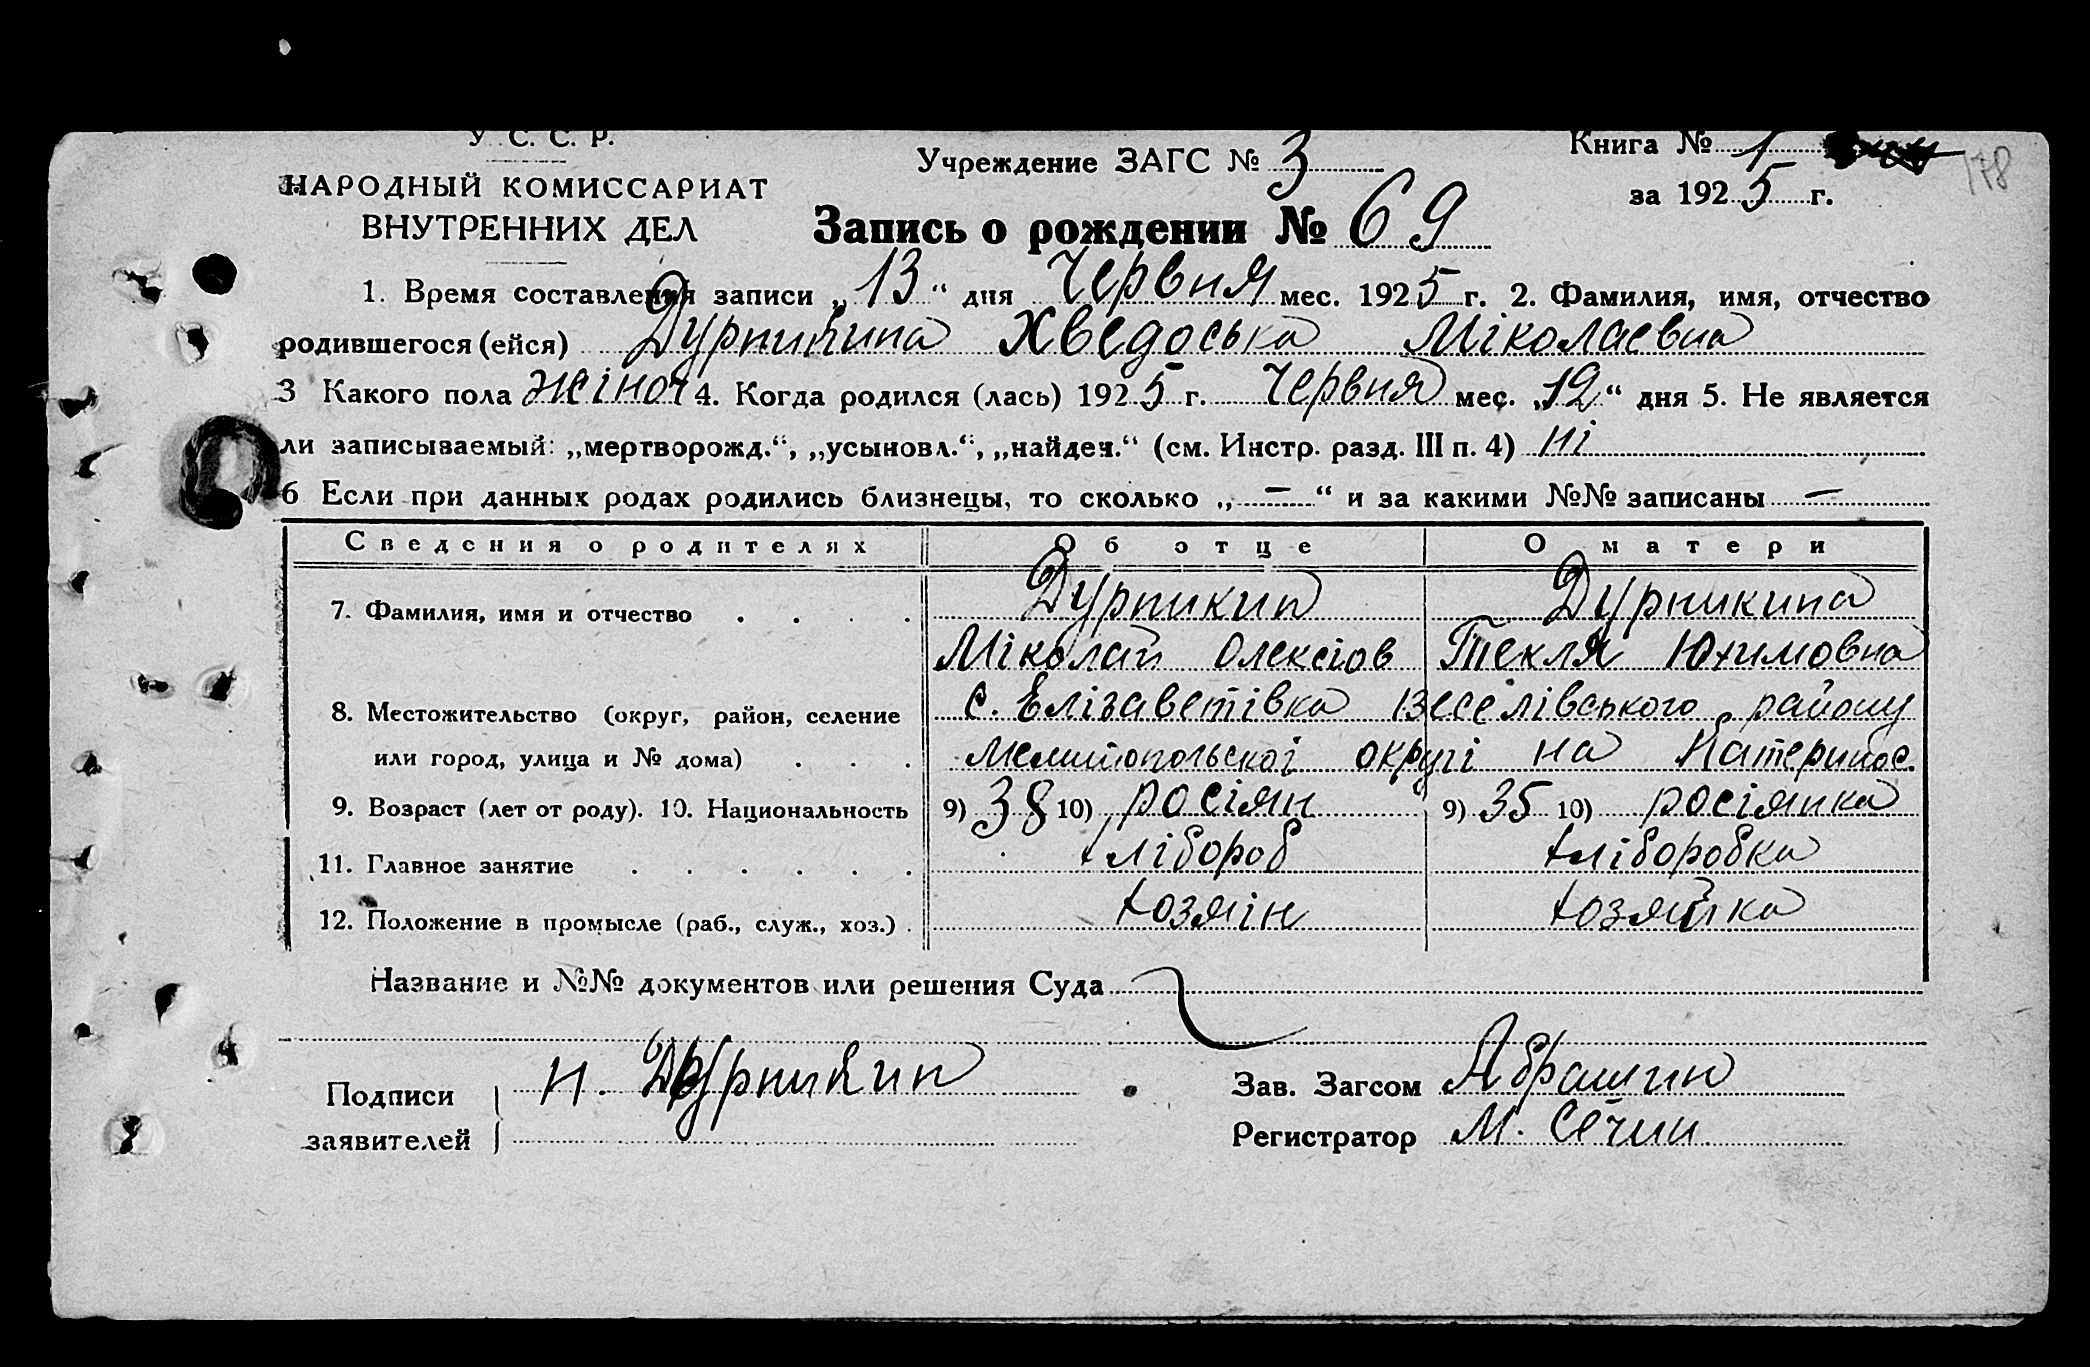 У. С. С. Р.
НАРОДНЫЙ КОМИССАРИАТ
ВНУТРЕННИХ ДЕЛ
Учреждение ЗАГС № 3
Книга № 1
за 1925 г.
178
Запись о рождении № 69
1. Время составления записи „13“ дня Червня мес. 1925 г. 2. Фамилия, имя, отчество
родившегося (ейся) Дурникина Хведоська Міколаевна
3 Какого пола жіноч 4. Когда родился (лась) 1925 г. Червня мес. „12“ дня 5. Не является
ли записываемый: „мертворожд.“, „усыновл.“, „найден.“ (см. Инстр. разд. III п. 4) ні
6 Если при данных родах родились близнецы, то сколько „—“ и за какими №№ записаны —
Сведения о родителях Об отце О матери
7. Фамилия, имя и отчество Дурникин Дурникина
Міколай Олексіов Текля Юхимовна
8. Местожительство (округ, район, селение с. Елізаветівка Веселівського району
или город, улица и № дома) Мелитопольскоі округі на Катеринос.
9. Возраст (лет от роду). 10. Национальность 9) 38 10) росіян 9) 35 10) росіянка
11. Главное занятие хлібороб хліборобка
12. Положение в промысле (раб., служ., хоз.) хозяін хозяйка
Название и №№ документов или решения Суда
Подписи заявителей Н. Дурникин
Зав. Загсом Абрашин
Регистратор М. Сечин